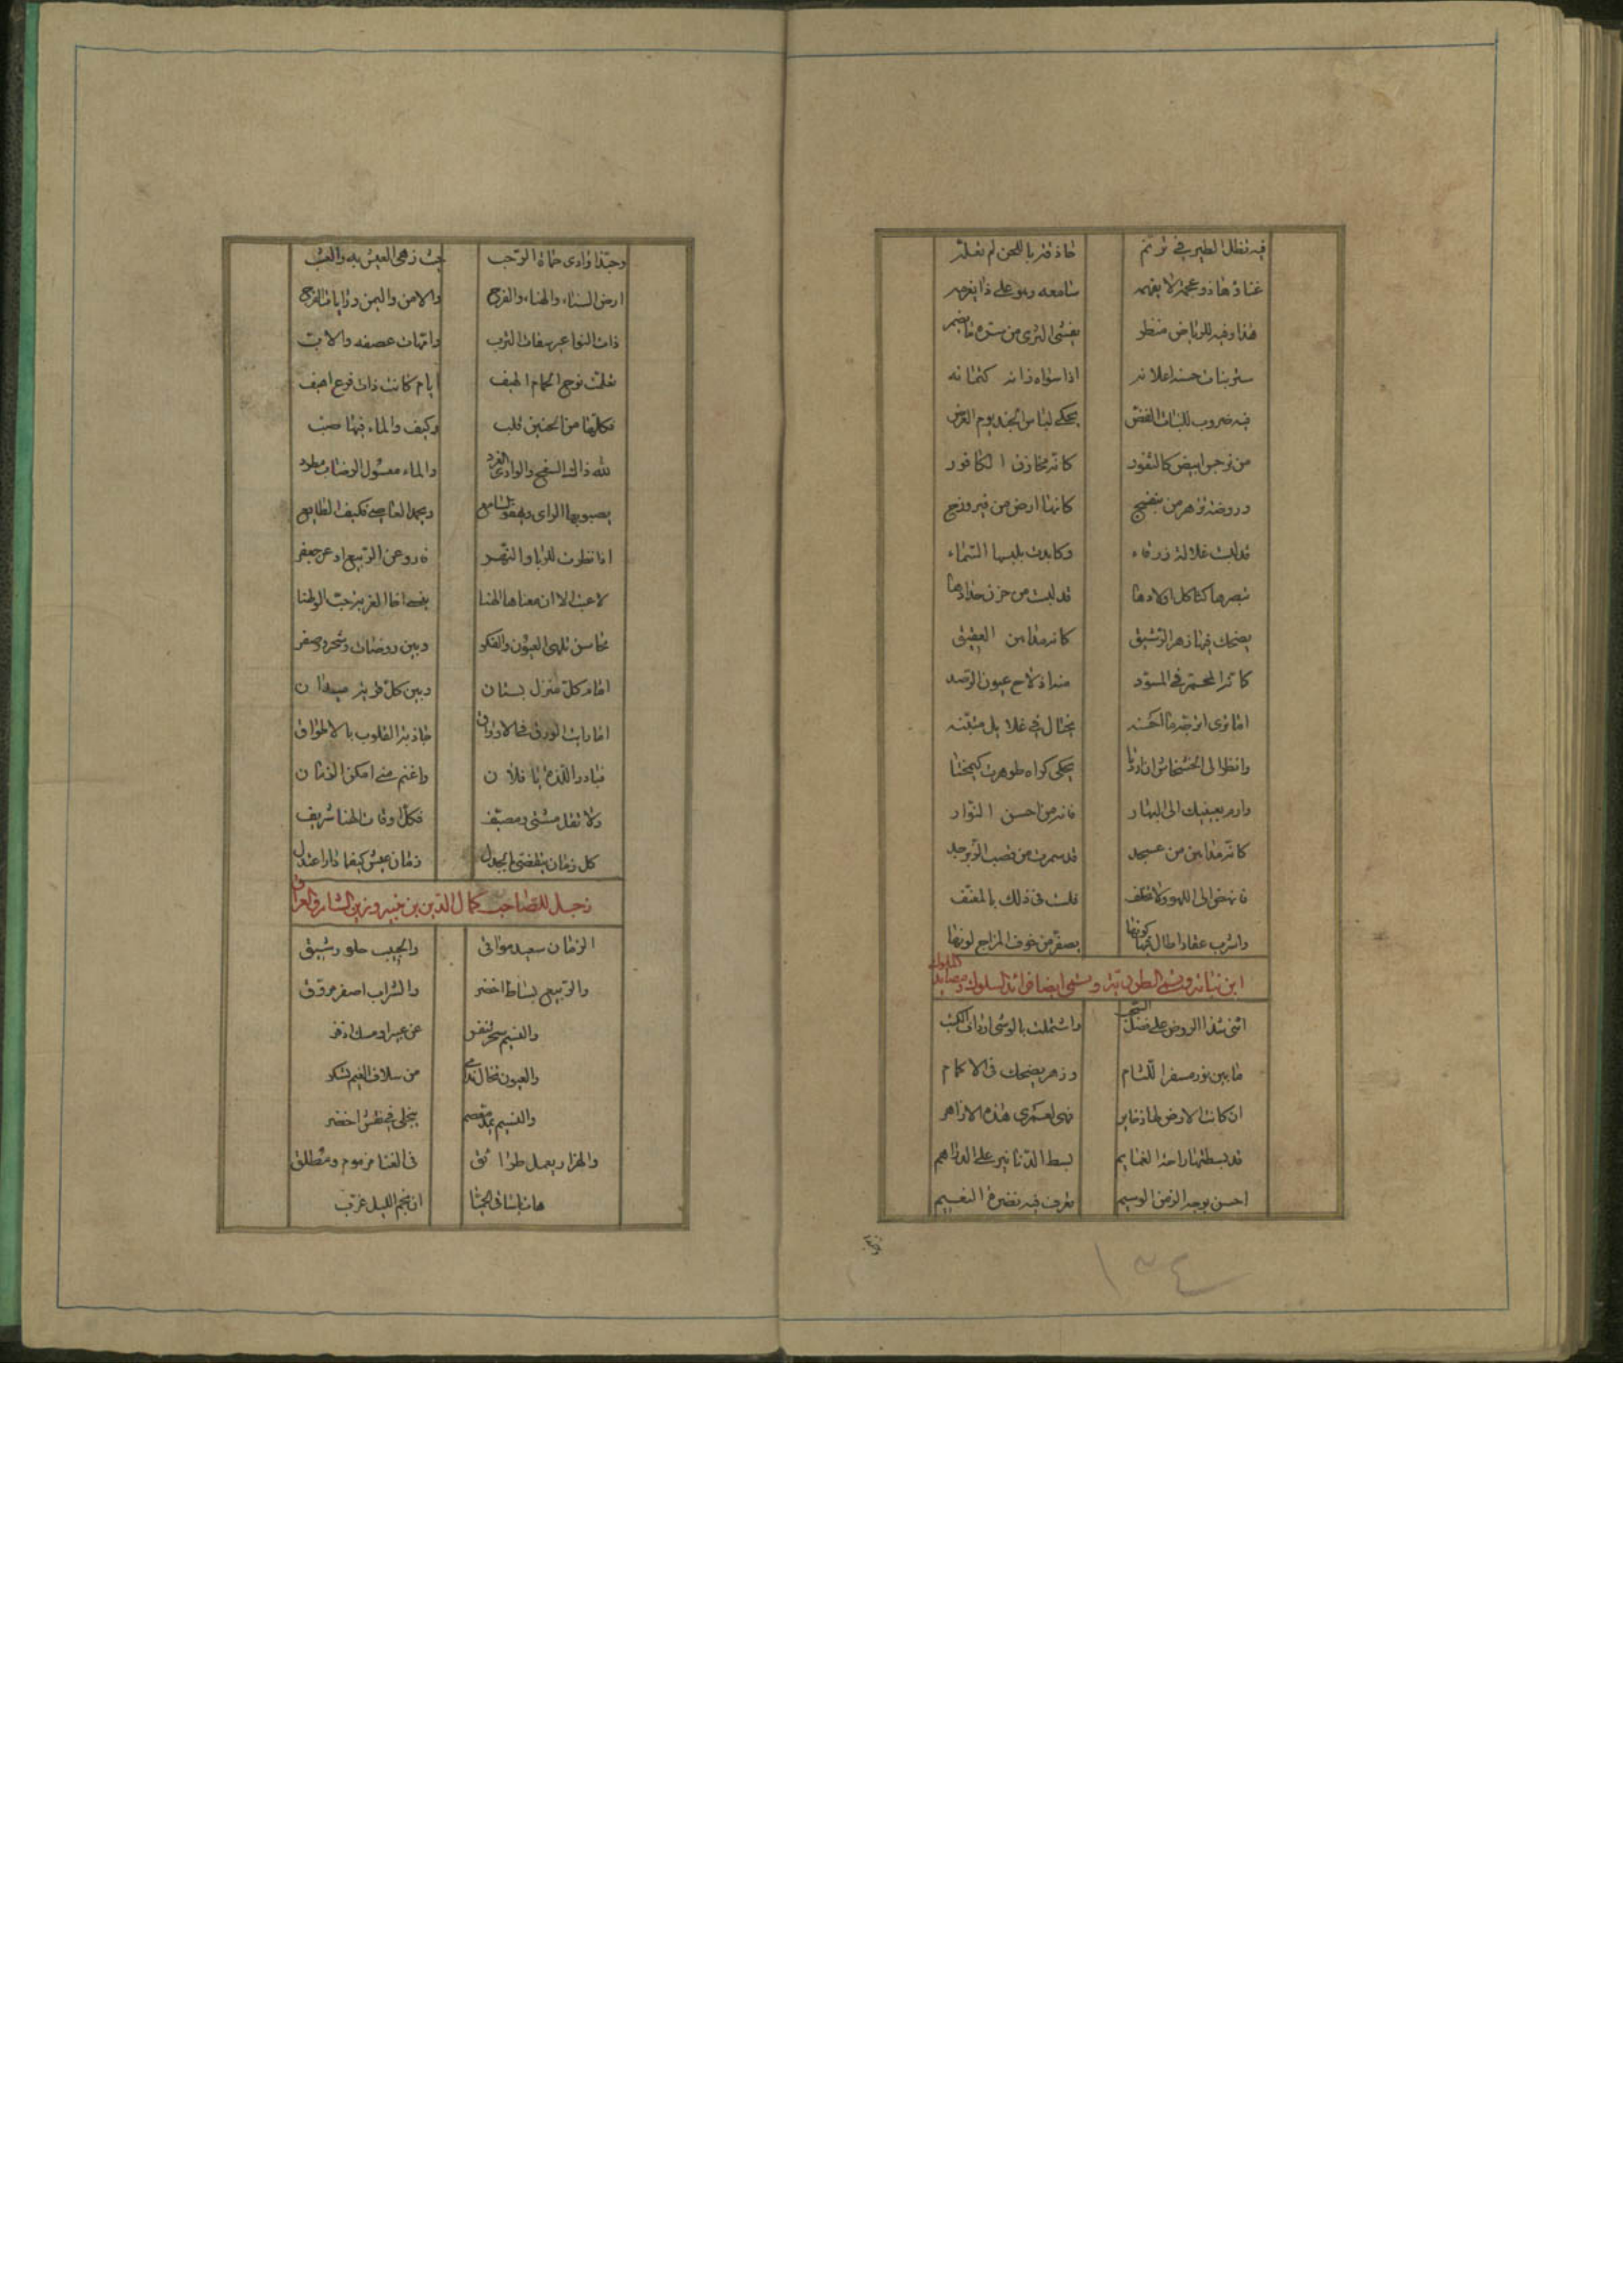 فيه تظل الطير في ترنم حاذقة باللحن لم تعلم
غناؤها ذو عجمة لا يفهمه سامعه وهو على ذا يغرمه
هذا وفيه للرياض منظر يفشى الثرى من سره ما يضمر
سر نبات حسنه اعلانه اذا سواه زانه كتمانه
فيه ضروب للنبات الغض يحكى لباس الجند يوم العرض
من نرجس ابيض كالثغور كانه مخازن الكافور
وروضة تزهر من بنفسج كانها ارض من فيروزج
قد لبست غلالة زرقاء وكايدت بلبسها السماء
تبصرها كثاكل اولادها قد لبست من حزن حدادها
يضحك فيها زهر الشقيق كانه مداهن العقيق
كانه المحمر في المسود منه اذ لاح عيون الرمد
اما ترى اترجه ما احسنه يختال في غلايل
وانظر الى الخشخاش ان
وارم بعينيك الى البهار فانه من احسن النوار
كانه مداهن من عسجد قد سمرت من قضب الزبرجد
فانهض الى اللهو ولا تخلف فلست في ذلك بالمعنف
واشرب عقارا طال فيها كونها يصفر من خوف المزاج لونها
ابن نباتة وتسمى ايضا فرائد السلوك ومصايد الملوك
اثنى شذا الروض على فضل السحب واشتملت بالوشى ارداف الكثب
ما بين نور مسفر اللثام وزهر يضحك في الاكمام
ان كانت الارض لها ذخاير فهى لعمرى هذه الازاهر
قد بسطتها راحة الغمايم بسط الدنانير على الدراهم
احسن بوجه الزمن الوسيم تعرف فيه نضرة النعيم
١٣٤
وحبذا وادى حماة الرحب حيث زهى العيش به والعشب
ارض السناء والهناء والفرح والامن واليمن ورايات الفرح
ذات النواعير سقات الترب وامهات عصفه والاب
تعلمت نوح الحمام الهيف ايام كانت ذات فرع اهيف
فكلها من الحنين قلب وكيف والماء فيها صب
لله ذاك السفح والوادى الغرد والماء معسول الرضاب مطرد
يصبو بها الراى ويهفو السامع ويحمد العاصى فكيف الطايع
اذا نظرت للربا والنهر فارو عن الربيع او عن جعفر
محاسن تلهى العيون والفكر وبين روضات وشحرور صفر
امام كل منزل بستان وبين كل قرية ميدان
اما رايت الورق في الاوراق جاذبة القلوب بالاطواق
فبادر اللذة يا فلان واغنم متى امكن الزمان
ولا تقل مشتى ومصيف فكل اوقات الهنا شريف
كل زمان ينقضى بالجدل زمان عيش كيفما دار اعتدل
زجل للصاحب كمال الدين
الزمان سعيد مواتى والحبيب حلو رشيق
والربيع بساط اخضر والشراب اصفر مروق
والنسيم سحر تنفس عن عبير او مسك اذفر
والغصون تخال ندامى من سلاف الغيم تسكر
والهزار يعمل طرائق في الغنا مزموم ومطلق
هات يا ساقى الحميا ان نجم الليل غرب